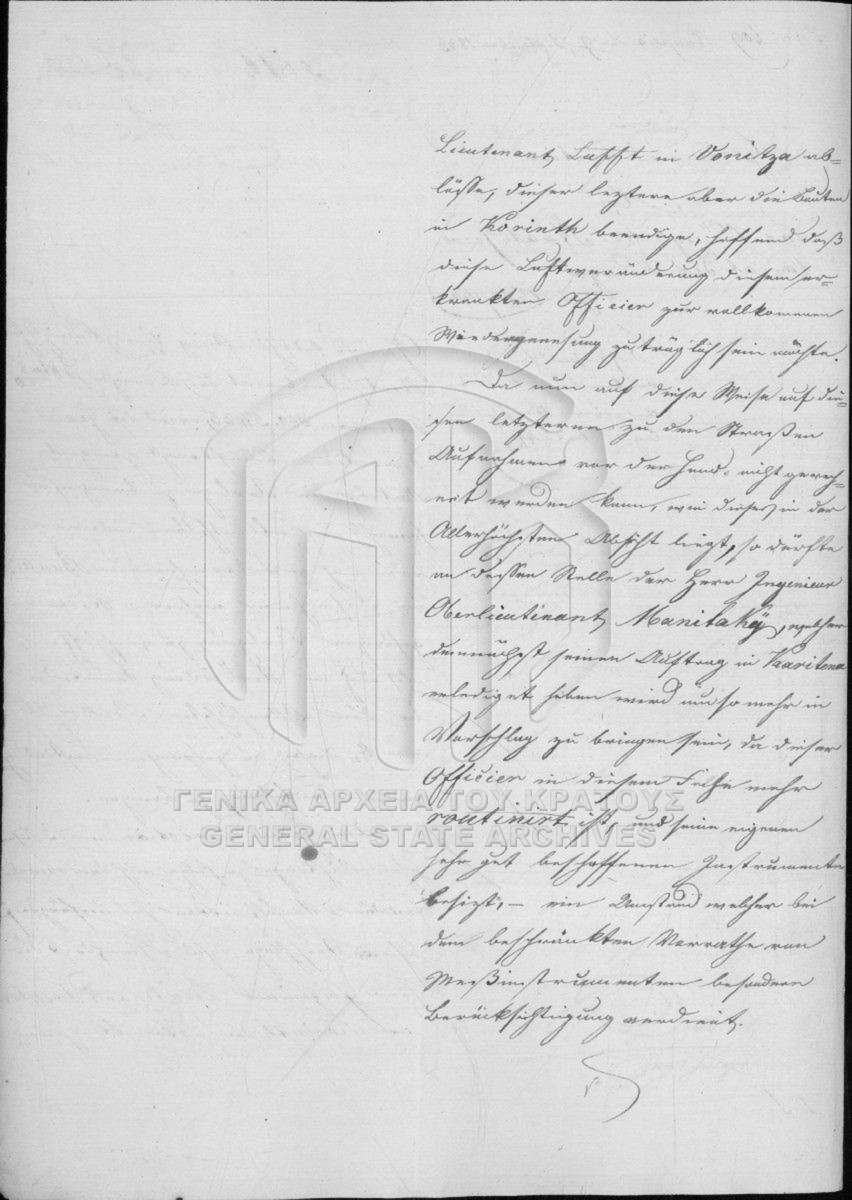 Lieutenant in Vonitza ab-
lösse, dieser leztere aber die Bauten
in Korinth beendige, hoffend daß
diese Luftveränderung diesem er-
krankten Officier zur vollkommenen
Wiedergenesung zuträglich sein möchte.
Da nun auf diese Weise auf die-
sen letzteren zu den Straßen
Aufnahmen vor der Hand nicht gerech-
net werden kann, wie dieses in der
Allerhöchsten Absicht liegt, so dürfte
an dessen Stelle der Herr Ingenieur
Oberlieutenant Manitaky, welcher
demnächst seinen Auftrag in Karitena
erlediget haben wird um so mehr in
Vorschlag zu bringen sein, da dieser
Officier in diesem Fache mehr
routinirt ist, und seine eigenen
sehr gut beschaffenen Instrumente
besizt, – ein Umstand welcher bei
dem beschränkten Vorrathe von
Meßinstrumenten besondere
Berücksichtigung verdient.
ΓΕΝΙΚΑ ΑΡΧΕΙΑ ΤΟΥ ΚΡΑΤΟΥΣ
GENERAL STATE ARCHIVES